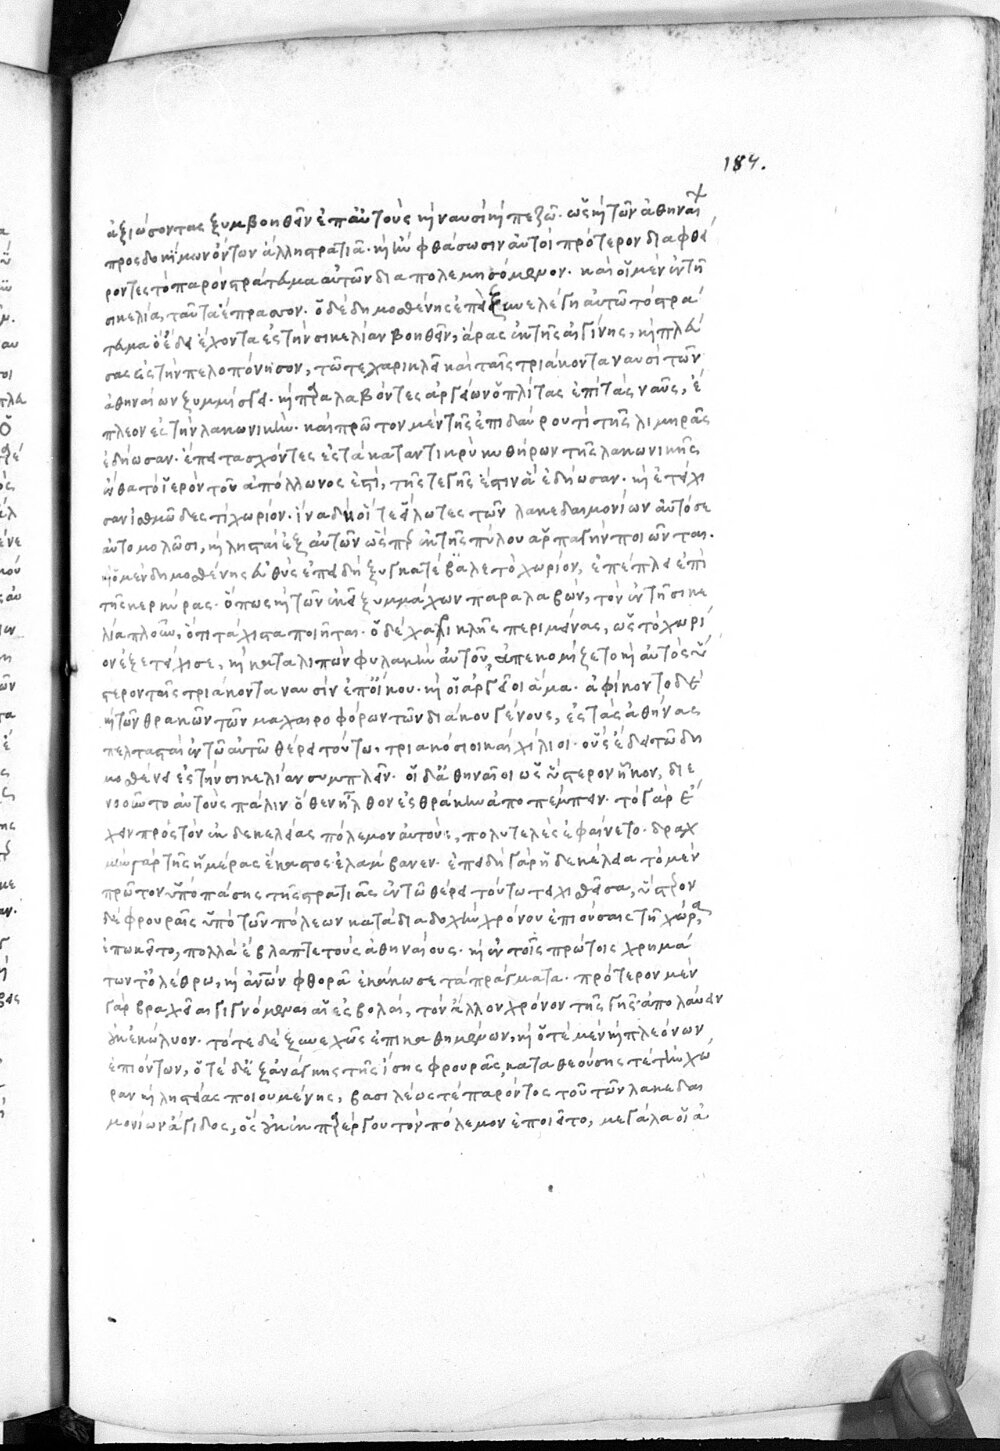 184.
ἀξιώσοντας ξυμβοηθεῖν ἐπ' αὐτοὺς καὶ ναυσὶ καὶ πεζῷ· ὡς καὶ τῶν ἀθηναί
προσδοκίμων ὄντων ἄλλη στρατιᾶ· καὶ ἢν φθάσωσιν αὐτοὶ πρότερον διαφθεί
ροντες τὸ παρὸν στράτευμα αὐτῶν διαπολεμησόμενον· καὶ οἱ μὲν ἐν τῆ
σικελία, ταῦτα ἔπρασσον· ὁ δὲ δημοσθένης ἐπεὶ ξυνελέγη αὐτῶ τὸ στρά
τευμα ὃ ἔδει ἔχοντα ἐς τὴν σικελίαν βοηθεῖν, ἄρας ἐκ τῆς αἰγίνης, καὶ πλεύ
σας ἐς τὴν πελοπόνησον, τῶ τε χαρικλεῖ καὶ ταῖς τριάκοντα ναυσὶ τῶν
ἀθηναίων ξυμμίσγει· καὶ παραλαβόντες ἀργείων ὁπλίτας ἐπὶ τὰς ναῦς, ἔ
πλεον ἐς τὴν λακωνικήν· καὶ πρῶτον μὲν τῆς ἐπιδαύρου τι τῆς λιμηρᾶς
ἐδήωσαν· ἔπειτα σχόντες ἐς τὰ καταντικρὺ κυθήρων τῆς λακωνικῆς
ἔνθα τὸ ἱερὸν τοῦ ἀπόλλωνος ἐστί, τῆς τε γῆς ἔστιν ἃ ἐδήωσαν· καὶ ἐτείχι
σαν ἰσθμῶδες τι χωρίον· ἵνα δὴ οἵ τε εἵλωτες τῶν λακεδαιμονίων αὐτόσε
αὐτομολῶσι, καὶ λησταὶ ἐξ αὐτῶν ὥσπερ ἐκ τῆς πύλου ἁρπαγὴν ποιῶνται.
καὶ ὁ μὲν δημοσθένης εὐθὺς ἐπειδὴ ξυγκατέβαλε τὸ χωρίον, ἐπέπλει ἐπὶ
τῆς κερκύρας· ὅπως καὶ τῶν ἐκεῖ ξυμμάχων παραλαβών, τὸν ἐν τῆ σικε
λία πλοῦν, ὅτι τάχιστα ποιῆται· ὁ δὲ χαρικλῆς περιμείνας, ὡς τὸ χωρί
ον ἐξετείχισε, καὶ καταλιπὼν φυλακὴν αὐτοῦ, ἀπεκομίζετο καὶ αὐτὸς ὕ
στερον ταῖς τριάκοντα ναυσὶν ἐπ' οἴκου· καὶ οἱ ἀργεῖοι ἅμα· ἀφίκοντο δὲ
καὶ τῶν θρακῶν τῶν μαχαιροφόρων τῶν διακοῦ γένους, ἐς τὰς ἀθήνας
πελτασταὶ ἐν τῶ αὐτῶ θέρει τούτω, τριακόσιοι καὶ χίλιοι· οὓς ἔδει τῶ δη
μοσθένει ἐς τὴν σικελίαν συμπλεῖν· οἱ δ' ἀθηναῖοι ὡς ὕστερον ἧκον, διε
νοοῦντο αὐτοὺς πάλιν ὅθεν ἦλθον ἐς θράκην ἀποπέμπειν· τὸ γὰρ ἔ
χειν πρὸς τὸν ἐκ δεκελείας πόλεμον αὐτούς, πολυτελὲς ἐφαίνετο· δραχ
μὴν γὰρ τῆς ἡμέρας ἕκαστος ἐλάμβανεν· ἐπειδὴ γὰρ ἡ δεκέλεια τὸ μὲν
πρῶτον ὑπὸ πάσης τῆς στρατιᾶς ἐν τῶ θέρει τούτω τειχισθεῖσα, ὕστερον
δὲ φρουραῖς ὑπὸ τῶν πόλεων κατὰ διαδοχὴν χρόνου ἐπιούσαις τῆ χώρα
ἐπωκεῖτο, πολλὰ ἔβλαπτε τοὺς ἀθηναίους· καὶ ἐν τοῖς πρώτοις χρημά
των τ' ὀλέθρω, καὶ ἀνθρώπων φθορᾶ ἐκάκωσε τὰ πράγματα· πρότερον μὲν
γὰρ βραχεῖαι γιγνόμεναι αἱ ἐσβολαί, τὸν ἄλλον χρόνον τῆς γῆς ἀπολαύειν
οὐκ ἐκώλυον· τότε δὲ ξυνεχῶς ἐπικαθημένων, καὶ ὁτὲ μὲν καὶ πλεόνων
ἐπιόντων, ὁτὲ δ' ἐξ ἀνάγκης τῆς ἴσης φρουρᾶς, καταθεούσης τε τὴν χώ
ραν καὶ ληστείας ποιουμένης, βασιλέως τε παρόντος τοῦ τῶν λακεδαι
μονίων ἄγιδος, ὃς οὐκ ἐκ παρέργου τὸν πόλεμον ἐποιεῖτο, μεγάλα οἱ ἀ